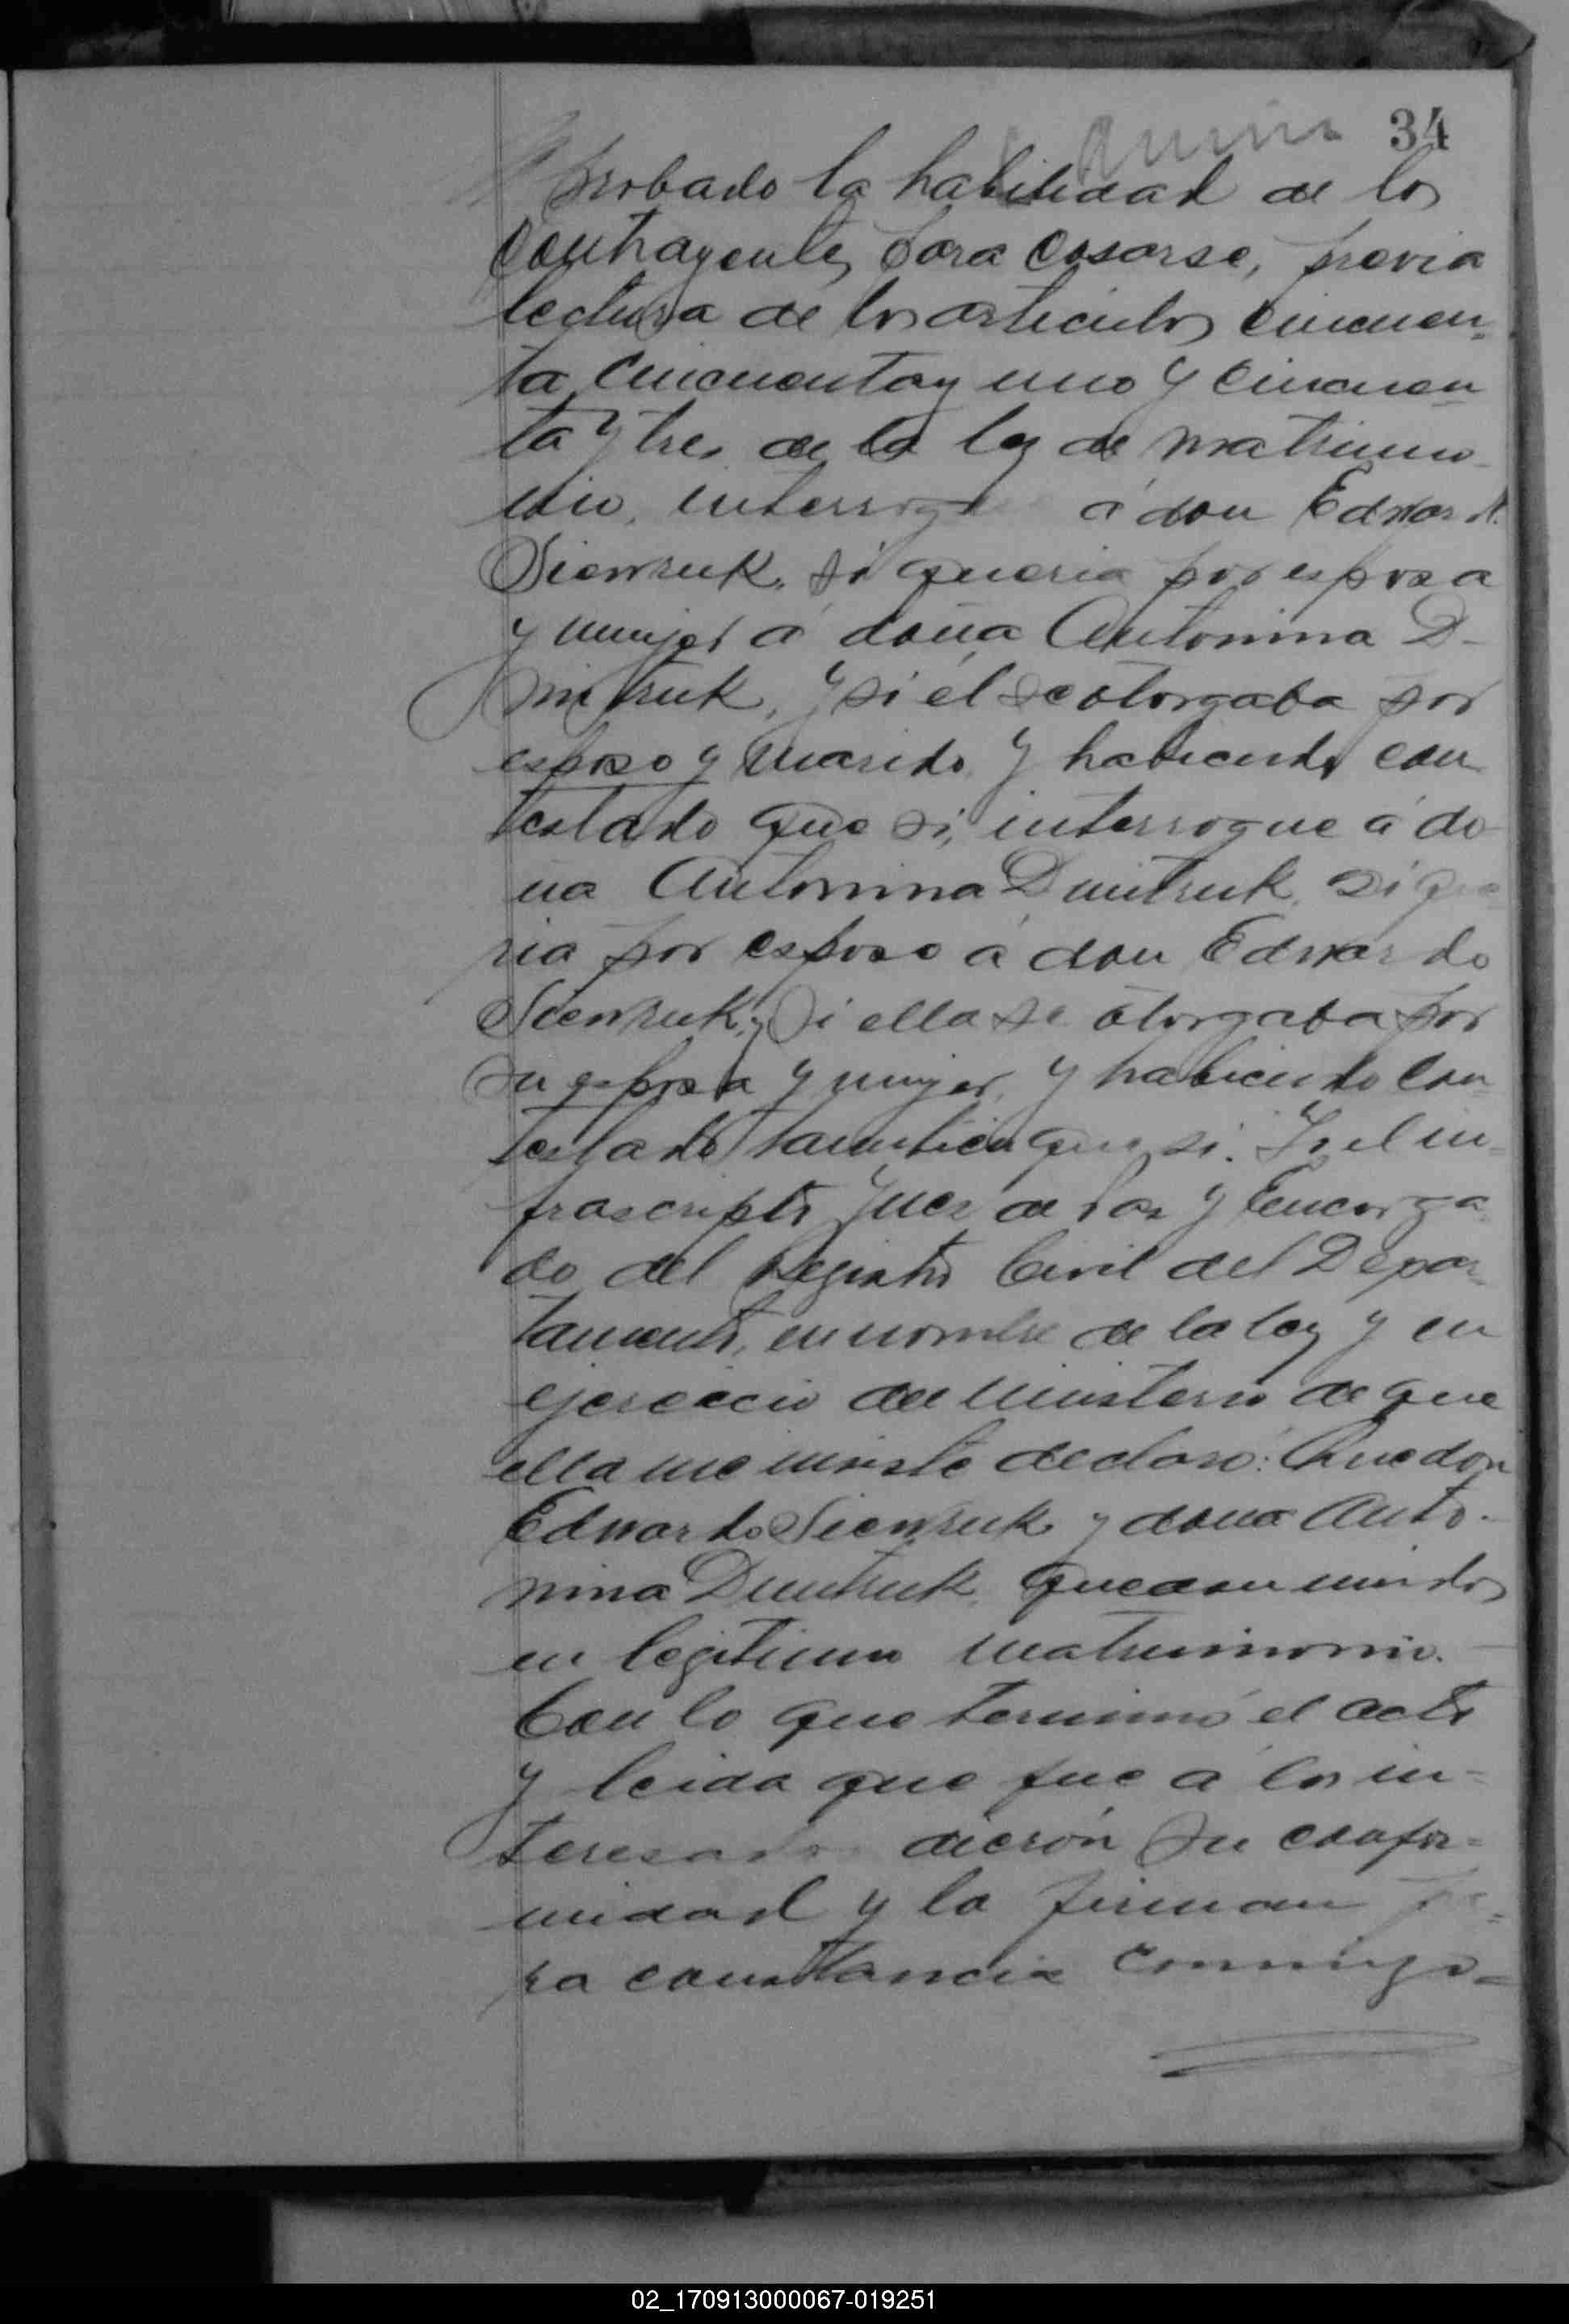 34
probado la habilidad de los
contrayentes para casarse, previa
lectura de los articulos cincuen-
ta, cincuenta y uno y cincuen-
ta y tres de la ley de matrimo-
nio, interrogué á don Eduardo
Sienruk, si queria por esposa
y mujer á doña Antonina D-
mitruk, y si él se otorgaba por
esposo y marido, y habiendo con
testado que si, interrogue á do-
ña Antonina Dmitruk, si que
ria por esposo á don Eduardo
Sienruk, y si ella se otorgaba por
su esposa y mujer, y habiendo con
testado tambien que si. Yo el in-
frascripto Juez de Paz y Encarga-
do del Registro Civil del Depar-
tamento, en nombre de la ley y en
ejercicio del ministerio de que
ella me inviste declaro: Que don
Eduardo Sienruk y doña Anto-
nina Dmitruk, quedan unidos
en legitimo matrimonio.
Con lo que terminó el acto
y leida que fue á los in-
teresados dierón su confor-
midad y la firman pa-
ra constancia conmigo-
02_170913000067-019251